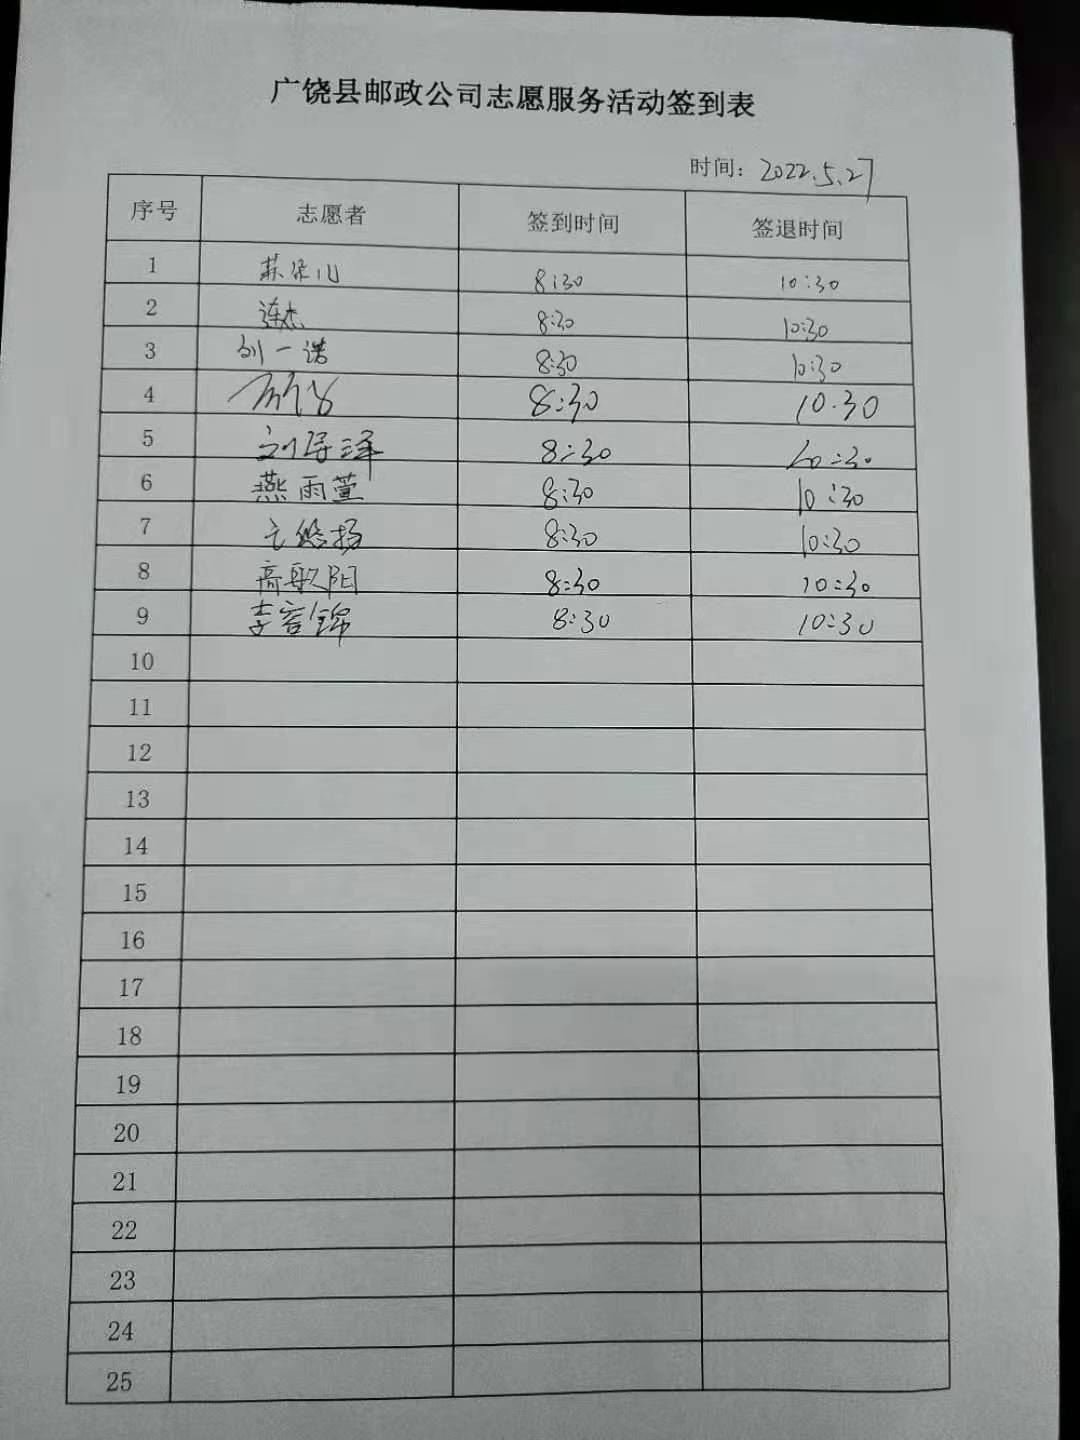 广饶县邮政公司志愿服务活动签到表
时间：2022.5.27
序号 志愿者 签到时间 签退时间
1 苏朵儿 8:30 10:30
2 连杰 8:30 10:30
3 刘一诺 8:30 10:30
4 8:30 10.30
5 刘泽 8:30 10:30
6 燕雨萱 8:30 10:30
7 悠扬 8:30 10:30
8 高歌阳 8:30 10:30
9 李容锦 8:30 10:30
10
11
12
13
14
15
16
17
18
19
20
21
22
23
24
25